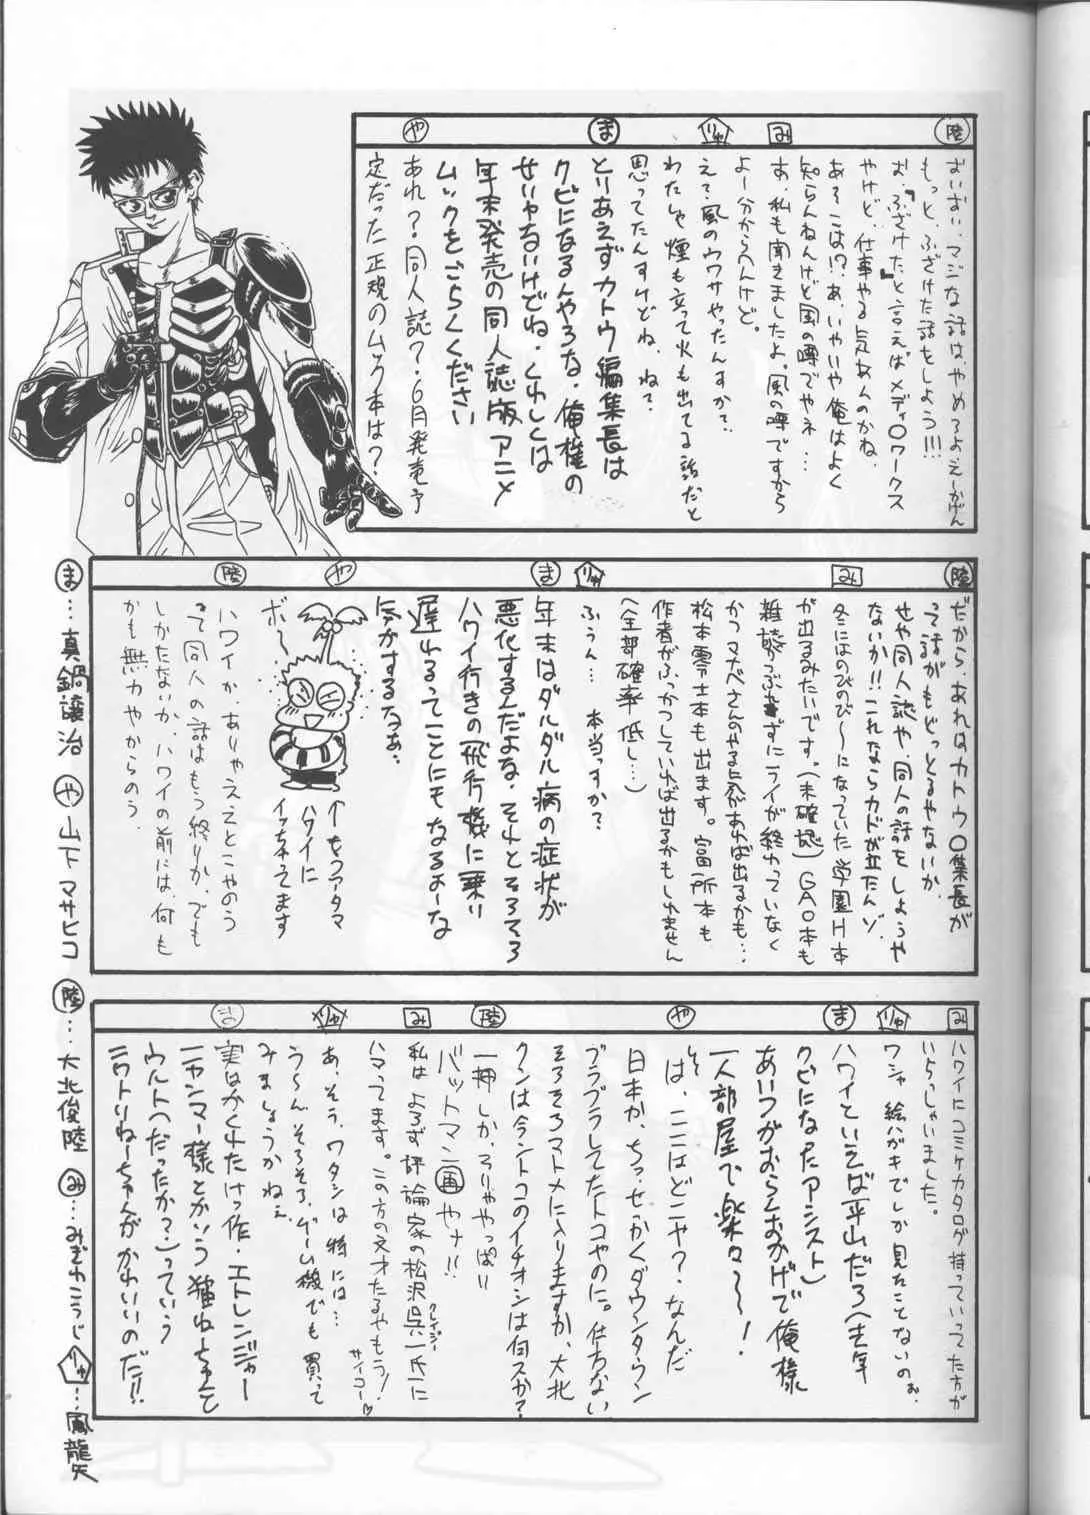 陸
み
りゅ
ま
や
おいおい、マジな話は、やめろよえーかげん
もっと、ふざけた話をしよう!!!
お、『ふざけた』と言えばメディ〇ワークス
やけど、仕事やる気あんのかね、
あそこは!?あ、いやいや俺はよく
知らんねんけど風の噂でやネ…
す、私も聞きましたよ。風の噂ですから
よー分からんけど。
え?風のウワサやったんすか?
わたしゃ煙も立って火も出てる話だと
思ってたんすけどね、ね?
とりあえずカトウ編集長は
クビになるんやろな・俺様の
せいやないけどね・くわしくは
年末発売の同人誌版アニメ
ムックをごらんください
あれ?同人誌?6月発売予
定だった正規のムック本は?
陸
み
りゅ
ま
や
陸
だから、あれはカトウ〇集長が
って話がもどっとるやないか、
せや同人誌や、同人の話をしようや
ないか!!これならカドが立たんゾ、
冬にはのびのび〜になっていた学園H本
が出るみたいです。(未確認)GAO本も
雑誌つぶさずにライが終わっていなく
かつマナベさんのやる気があれば出るかも…
松本零士本も出ます。富所本も
作者がふっかつしていれば出るかもしれません
(全部確率低し…)
ふぅん…本当っすか?
年末はダルダル病の症状が
悪化するんだよな、それとそろそろ
ハワイ行きの飛行機に乗り
遅れるってことにもなるよーな
気がするなぁ、
ボ〜
↑もうアタマ
ハワイに
イッちゃってます
ハワイか、ありゃええとこやのう
って同人の話はもう終りか、でも
しかたないか、ハワイの前には、何も
かも無力やからのう、
み
りゅ
ま
や
陸
み
りゅ
ま
ハワイにコミケカタログ持っていってた方が
いらっしゃいました。
ワシャ絵ハガキでしか見たことないのぉ、
ハワイといえば平山だろ(去年
クビになったアシスト)
あいつがおらんおかげで俺様
一人部屋で楽々〜〜!
は、ここはどこや?・なんだ
日本か、ちっ、せっかくダウンタウン
ブラブラしてたトコやのに。仕方ない
そろそろマトメに入りますか、大北
クンは今ントコのイチオシは何スか?
一押しか、そりゃやっぱり
バットマン再やナ!!
私は、よろず評論家の松沢呉一氏に
クレイジー
ハマってます。この方の文才たるやもう!
サイコー♡
あ、そう、ワタシは特には…
う〜んそろそろ、ゲーム機でも買って
みましょうかねぇ
実はかくれたけっ作・エトレンジャー
ニャンマー様とかいう猫ねえちゃんと
ウルトへ(だったか?)っていう
ニワトリねーちゃんがかわいいのだ!!
ま…真鍋譲治 や…山下マサヒコ 陸…大北俊陸 み…みぎわこうじ りゅ…風龍矢